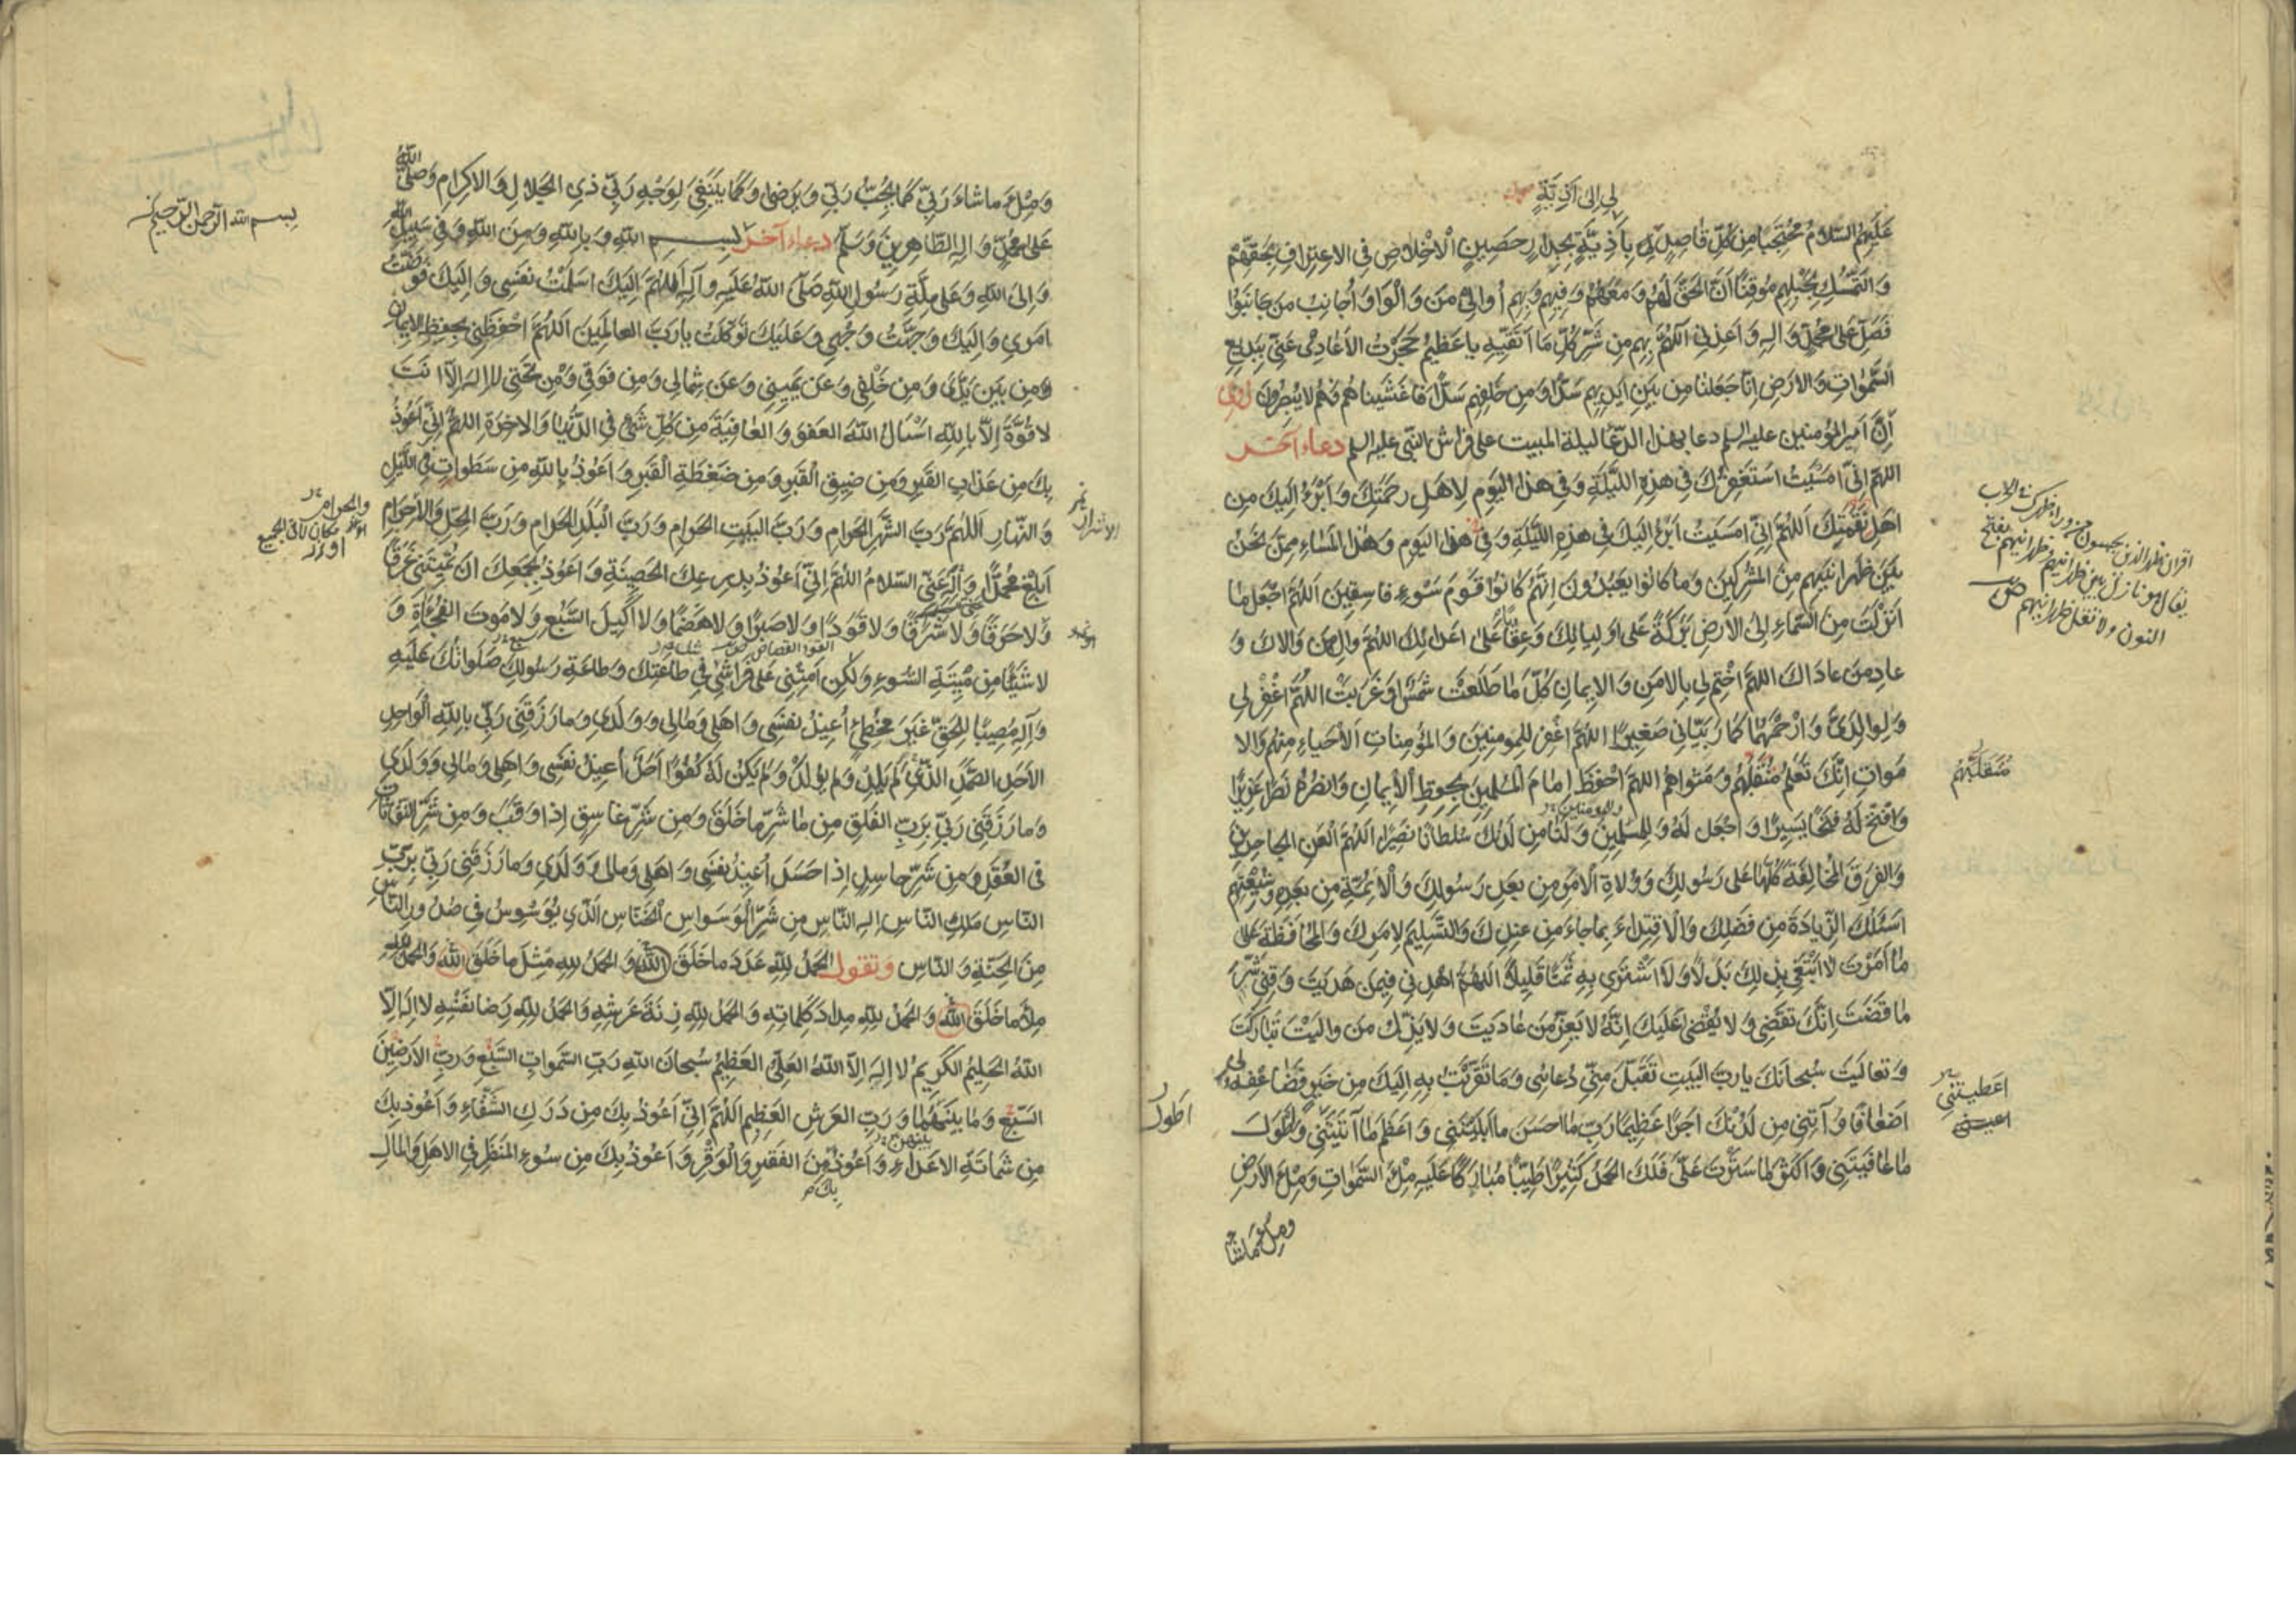 لي إلى أذية
عَلَيْهِمُ السَّلامُ مُحْتَجِبًا مِنْ كُلِّ قاصِدٍ لِي بِأَذِيَّةٍ بِجِدارٍ حَصِينٍ الْاِخْلاصِ فِى الاِعْتِرافِ بِحَقِّهِمْ
وَالتَّمَسُّكِ بِحَبْلِهِمْ مُوقِنًا أَنَّ الحَقَّ لَهُمْ وَمَعَهُمْ وَفِيهِمْ وَبِهِمْ أُوالِى مَنْ وَالَوْا وَأُجانِبُ مَنْ جانَبُوا
فَصَلِّ عَلى مُحَمَّدٍ وَآلِهِ وَأَعِذْنِى اللّهُمَّ بِهِمْ مِنْ شَرِّ كُلِّ مَا أَتَّقِيهِ يا عَظِيمُ حَجَزْتُ الاَعادِىَ عَنِّى بِبَدِيعِ
السَّمٰواتِ وَالاَرْضِ اِنّا جَعَلْنا مِنْ بَيْنِ اَيْدِيهِمْ سَدًّا وَمِنْ خَلْفِهِمْ سَدًّا فَاَغْشَيْناهُمْ فَهُمْ لا يُبْصِرُونَ رُوِىَ
أنَّ اَميرالمؤمنين عليه السلم دعا بهذا الدعاء ليلة المبيت على فراش النبى عليه السلم دعاء آخر
اللهمّ اِنّى اَمْسَيْتُ اَسْتَغْفِرُكَ فى هذِهِ اللَّيْلَةِ وَفى هذَا اليَوْمِ لِاَهْلِ رَحْمَتِكَ وَاَبْرَءُ اِلَيْكَ مِن
اَهْلِ نَقْمَتِكَ اَللّهُمَّ اِنّى اَمْسَيْتُ اَبْرَءُ اِلَيْكَ فى هذِهِ اللَّيْلَةِ وَفى هذَا اليَوْمِ وَهذَا المَساءِ مِمَّنْ نَحْنُ
بَيْنَ ظَهْرانَيْهِمْ مِنَ المُشْرِكِينَ وَما كانُوا يَعْبُدُونَ اِنَّهُمْ كانُوا قَوْمَ سَوْءٍ فاسِقِينَ اَللّهُمَّ اجْعَلْ ما
اَنْزَلْتَ مِنَ السَّماءِ اِلَى الاَرْضِ بَرَكَةً عَلى اَوْلِيائِكَ وَعِقابًا عَلى اَعْدائِكَ اللهُمَّ والِ مَنْ وَالاكَ وَ
عادِ مَنْ عاداكَ اللهمَّ اخْتِمْ لِى بِالاَمْنِ وَالاِيمانِ كُلَّ ما طَلَعَتْ شَمْسٌ اَوْ غَرَبَتْ اللهُمَّ اغْفِرْ لِى
وَلِوالِدَىَّ وَارْحَمْهُما كَما رَبَّيانِى صَغِيرًا اللهُمَّ اغْفِرْ لِلْمُؤْمِنِينَ وَالمُؤْمِناتِ اَلاَحْياءِ مِنْهُمْ وَالا
مْواتِ اِنَّكَ تَعْلَمُ مُنْقَلَبَهُمْ وَمَثْواهُمْ اللهمَّ احْفَظْ اِمامَ المُسْلِمِينَ بِحِفْظِ الاِيمانِ وَانْصُرْهُ نَصْرًا عَزِيزًا
وَافْتَحْ لَهُ فَتْحًا يَسِيرًا وَاجْعَلْ لَهُ وَلِلْمُسْلِمِينَ وَلَنا مِنْ لَدُنْكَ سُلْطانًا نَصِيرًا اَللّهُمَّ الْعَنِ الجاحِدِينَ
وَالفِرَقَ المُخالِفَةَ كُلَّها عَلى رَسُولِكَ وَوُلاةِ الاَمْرِ مِنْ بَعْدِ رَسُولِكَ وَالاَئِمَّةِ مِنْ بَعْدِهِ وَشِيعَتِهِمْ
اَسْئَلُكَ الزِّيادَةَ مِنْ فَضْلِكَ وَالاِقْتِداءَ بِما جاءَ مِنْ عِنْدِكَ وَالتَّسْلِيمَ لِاَمْرِكَ وَالمُحافَظَةَ عَلى
ما اَمَرْتَ لا اَبْتَغِى بِذلِكَ بَدَلًا وَلا اَشْتَرِى بِهِ ثَمَنًا قَلِيلًا اللهُمَّ اهْدِنِى فِيمَنْ هَدَيْتَ وَقِنِى شَرَّ
ما قَضَيْتَ اِنَّكَ تَقْضِى وَلا يُقْضى عَلَيْكَ اِنَّهُ لا يَعِزُّ مَنْ عادَيْتَ وَلا يَذِلُّ مَنْ والَيْتَ تَبارَكْتَ
وَتَعالَيْتَ سُبْحانَكَ يا رَبَّ البَيْتِ تَقَبَّلْ مِنِّى دُعائِى وَما تَقَرَّبْتُ بِهِ اِلَيْكَ مِنْ خَيْرٍ فَضاعِفْهُ لى
اَضْعافًا وَآتِنِى مِنْ لَدُنْكَ اَجْرًا عَظِيمًا رَبِّ ما اَحْسَنَ ما اَبْلَيْتَنِى وَاَعْظَمَ ما آتَيْتَنِى وَاَطْوَلَ
ما عافَيْتَنِى وَاَكْثَرَ ما سَتَرْتَ عَلَىَّ فَلَكَ الحَمْدُ كَثِيرًا طَيِّبًا مُبارَكًا عَلَيْهِ مِلْءَ السَّمٰواتِ وَمِلْءَ الاَرْضِ
ومِلْءَ ماشاء
مُنْقَلَبَهُمْ
اعطيتنى
اطول
وَمِلْءَ ما شاءَ رَبِّى كَما يُحِبُّ رَبِّى وَيَرْضى وَكَما يَنْبَغِى لِوَجْهِ رَبِّى ذِى الجَلالِ وَالاِكْرامِ وَصَلَّى اللهُ
عَلى مُحَمَّدٍ وَآلِهِ الطّاهِرِينَ وَسَلَّمَ دعاء آخر بسم اللهِ وَبِاللهِ وَمِنَ اللهِ وَفِى سَبِيلِ اللهِ
وَاِلَى اللهِ وَعَلى مِلَّةِ رَسُولِ اللهِ صَلَّى اللهُ عَلَيْهِ وَآلِهِ اَللّهُمَّ اِلَيْكَ اَسْلَمْتُ نَفْسِى وَاِلَيْكَ فَوَّضْتُ
اَمْرِى وَاِلَيْكَ وَجَّهْتُ وَجْهِى وَعَلَيْكَ تَوَكَّلْتُ يا رَبَّ العالَمِينَ اَللّهُمَّ احْفَظْنِى بِحِفْظِ الاِيمانِ
مِنْ بَيْنِ يَدَىَّ وَمِنْ خَلْفِى وَعَنْ يَمِينِى وَعَنْ شِمالِى وَمِنْ فَوْقِى وَمِنْ تَحْتِى لا اِلهَ اِلّا اَنْتَ
لا قُوَّةَ اِلّا بِاللهِ اَسْئَلُ اللهَ العَفْوَ وَالعافِيَةَ مِنْ كُلِّ شَىْءٍ فِى الدُّنْيا وَالآخِرَةِ اللهُمَّ اِنِّى اَعُوذُ
بِكَ مِنْ عَذابِ القَبْرِ وَمِنْ ضِيقِ القَبْرِ وَمِنْ ضَغْطَةِ القَبْرِ وَاَعُوذُ بِاللهِ مِنْ سَطَواتِ اللَّيْلِ
وَالنَّهارِ اَللّهُمَّ رَبَّ الشَّهْرِ الحَرامِ وَرَبَّ البَيْتِ الحَرامِ وَرَبَّ البَلَدِ الحَرامِ وَرَبَّ الحِلِّ وَالاِحْرامِ
اَبْلِغْ مُحَمَّدًا وَآلَهُ عَنِّى السَّلامَ اللهُمَّ اِنِّى اَعُوذُ بِدِرْعِكَ الحَصِينَةِ وَاَعُوذُ بِجَمْعِكَ اَنْ تُمِيتَنِى غَرَقًا
وَلا حَرَقًا وَلا شَرَقًا وَلا قَوَدًا وَلا صَبْرًا وَلا هَضْمًا وَلا اَكِيلَ السَّبُعِ وَلا مَوْتَ الفُجْاَةِ وَ
لا شَيْئًا مِنْ مِيتَةِ السُّوءِ وَلكِنْ اَمِتْنِى عَلى فِراشِى فِى طاعَتِكَ وَطاعَةِ رَسُولِكَ صَلَواتُكَ عَلَيْهِ
وَآلِهِ مُصِيبًا لِلْحَقِّ غَيْرَ مُخْطِئٍ اُعِيذُ نَفْسِى وَاَهْلِى وَمالِى وَوَلَدِى وَما رَزَقَنِى رَبِّى بِاللهِ الْواحِدِ
الاَحَدِ الصَّمَدِ الَّذِى لَمْ يَلِدْ وَلَمْ يُولَدْ وَلَمْ يَكُنْ لَهُ كُفُوًا اَحَدٌ اُعِيذُ نَفْسِى وَاَهْلِى وَمالِى وَوَلَدِى
وَما رَزَقَنِى رَبِّى بِرَبِّ الفَلَقِ مِنْ شَرِّ ما خَلَقَ وَمِنْ شَرِّ غاسِقٍ اِذا وَقَبَ وَمِنْ شَرِّ النَّفّاثاتِ
فِى العُقَدِ وَمِنْ شَرِّ حاسِدٍ اِذا حَسَدَ اُعِيذُ نَفْسِى وَاَهْلِى وَمالِى وَوَلَدِى وَما رَزَقَنِى رَبِّى بِرَبِّ
النّاسِ مَلِكِ النّاسِ اِلهِ النّاسِ مِنْ شَرِّ الْوَسْواسِ الْخَنّاسِ الَّذِى يُوَسْوِسُ فِى صُدُورِ النّاسِ
مِنَ الجِنَّةِ وَالنّاسِ وتقول الحَمْدُ لِلّهِ عَدَدَ ما خَلَقَ اللهُ وَالحَمْدُ لِلّهِ مِثْلَ ما خَلَقَ اللهُ وَالحَمْدُ لِلّهِ
مِلْءَ ما خَلَقَ اللهُ وَالحَمْدُ لِلّهِ مِدادَ كَلِماتِهِ وَالحَمْدُ لِلّهِ زِنَةَ عَرْشِهِ وَالحَمْدُ لِلّهِ رِضا نَفْسِهِ لا اِلهَ اِلّا
اللهُ الحَلِيمُ الكَرِيمُ لا اِلهَ اِلّا اللهُ العَلِىُّ العَظِيمُ سُبْحانَ اللهِ رَبِّ السَّمواتِ السَّبْعِ وَرَبِّ الاَرَضِينَ
السَّبْعِ وَما بَيْنَهُما وَرَبِّ العَرْشِ العَظِيمِ اَللّهُمَّ اِنِّى اَعُوذُ بِكَ مِنْ دَرَكِ الشَّقاءِ وَاَعُوذُ بِكَ
مِنْ شَماتَةِ الاَعْداءِ وَاَعُوذُ مِنَ الفَقْرِ وَالْوَقْرِ وَاَعُوذُ بِكَ مِنْ سُوءِ المَنْظَرِ فِى الاَهْلِ وَالمالِ
بك
بسم الله الرحمن الرحيم